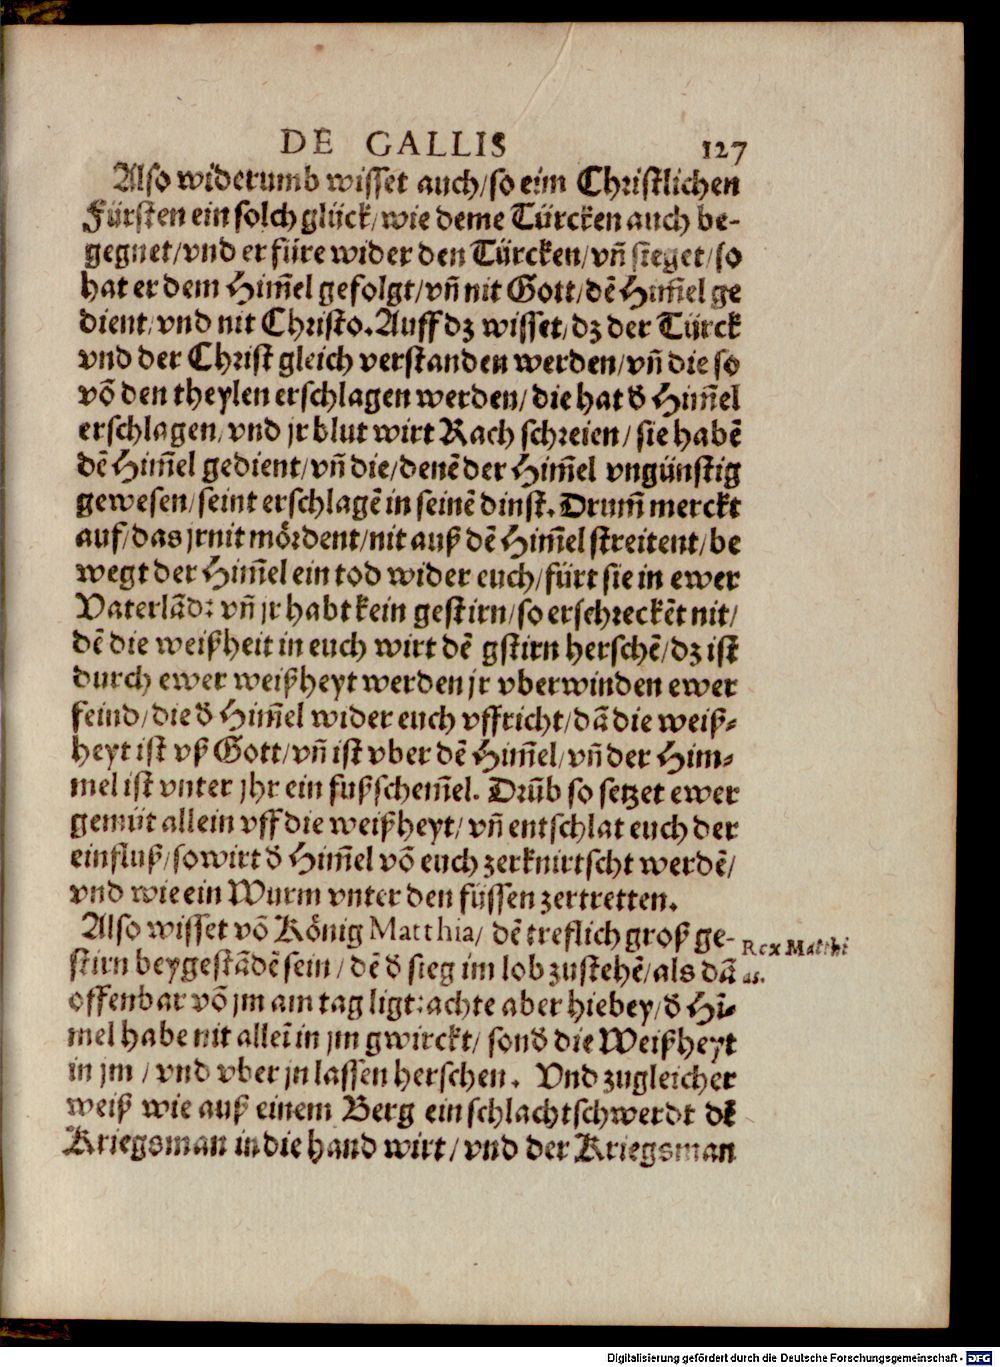 DE GALLIS 127
Also widerumb wisset auch/so eim Christlichen
Fürsten ein solch glück/wie deme Türcken auch be-
gegnet/vnd er füre wider den Türcken/vn̄ sieget/so
hat er dem Him̄el gefolgt/vn̄ nit Gott/dē Him̄el ge
dient/vnd nit Christo. Auff dz wisset/dz der Türck
vnd der Christ gleich verstanden werden/vn̄ die so
vō den theylen erschlagen werden/die hat d̄ Him̄el
erschlagen/vnd jr blut wirt Rach schreien/sie habē
dē Him̄el gedient/vn̄ die/denē der Him̄el vngünstig
gewesen/seint erschlagē in seinē dinst. Drum̄ merckt
auf/das jr nit mördent/nit auß dē Him̄el streitent/be
wegt der Him̄el ein tod wider euch/fürt sie in ewer
Vaterlād: vn̄ jr habt kein gestirn/so erschreckēt nit/
dē die weißheit in euch wirt dē gstirn herschē/dz ist
durch ewer weißheyt werden jr vberwinden ewer
feind/die d̄ Him̄el wider euch vffricht/dā die weiß-
heyt ist vß Gott/vn̄ ist vber dē Him̄el/vn̄ der Him-
mel ist vnter jhr ein fußschem̄el. Drūb so setzet ewer
gemüt allein vff die weißheyt/vn̄ entschlat euch der
einfluß/so wirt d̄ Him̄el vō euch zerknirtscht werdē/
vnd wie ein Wurm vnter den füssen zertretten.
Also wisset vō König Matthia/dē treflich groß ge-
Rex Matthi
stirn beygestādē sein/dē d̄ sieg im lob zustehē/als dā
as.
offenbar vō jm am tag ligt: achte aber hiebey/d̄ Hī-
mel habe nit alleī in jm gwirckt/sond̄ die Weißheyt
in jm/vnd vber jn lassen herschen. Vnd zugleicher
weiß wie auß einem Berg ein schlachtschwerdt dē
Kriegsman in die hand wirt/vnd der Kriegsman
Digitalisierung gefördert durch die Deutsche Forschungsgemeinschaft - DFG